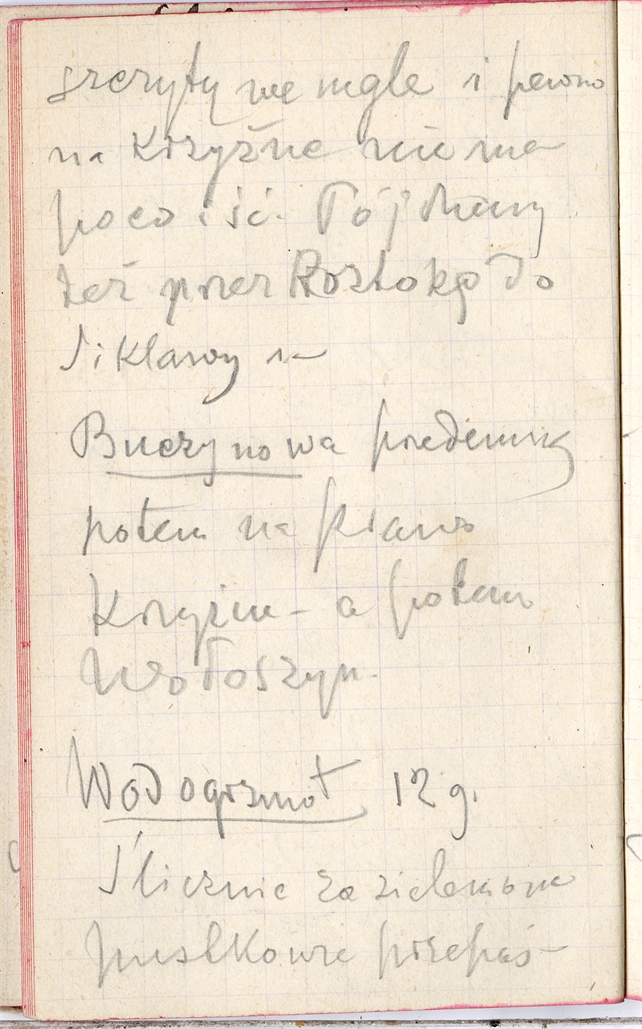 szczyty we mgle i pewno
na Krzyżne niema
poco iść. Pójdziemy
też przez Roztokę do
Siklawy na
Buczynowa przedemną
potem na prawo
Krzyżne – a potem
Wołoszyn.
Wodogrzmot 12 g.
Ślicznie za zielenione
przepaś-